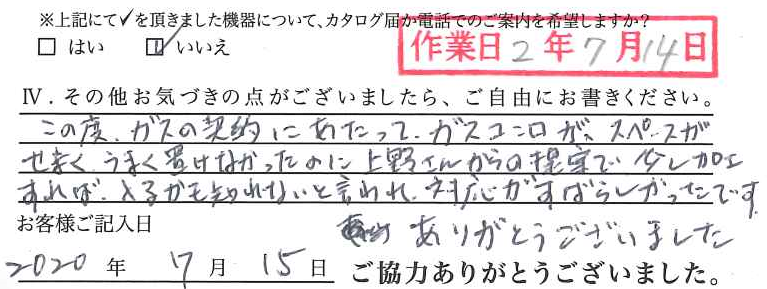 ※上記にて✓を頂きました機器について、カタログ届か電話でのご案内を希望しますか？
□ はい ☑ いいえ
作業日 2年7月14日
Ⅳ．その他お気づきの点がございましたら、ご自由にお書きください。
この度、ガスの契約にあたって、ガスコンロが、スペースが
せまく うまく置けなかったのに 上野さんからの提案で 少し加工
すれば、入るかも知れないと言われ、対応がすばらしかったです
ありがとうございました
お客様ご記入日
2020 年 7 月 15 日 ご協力ありがとうございました。